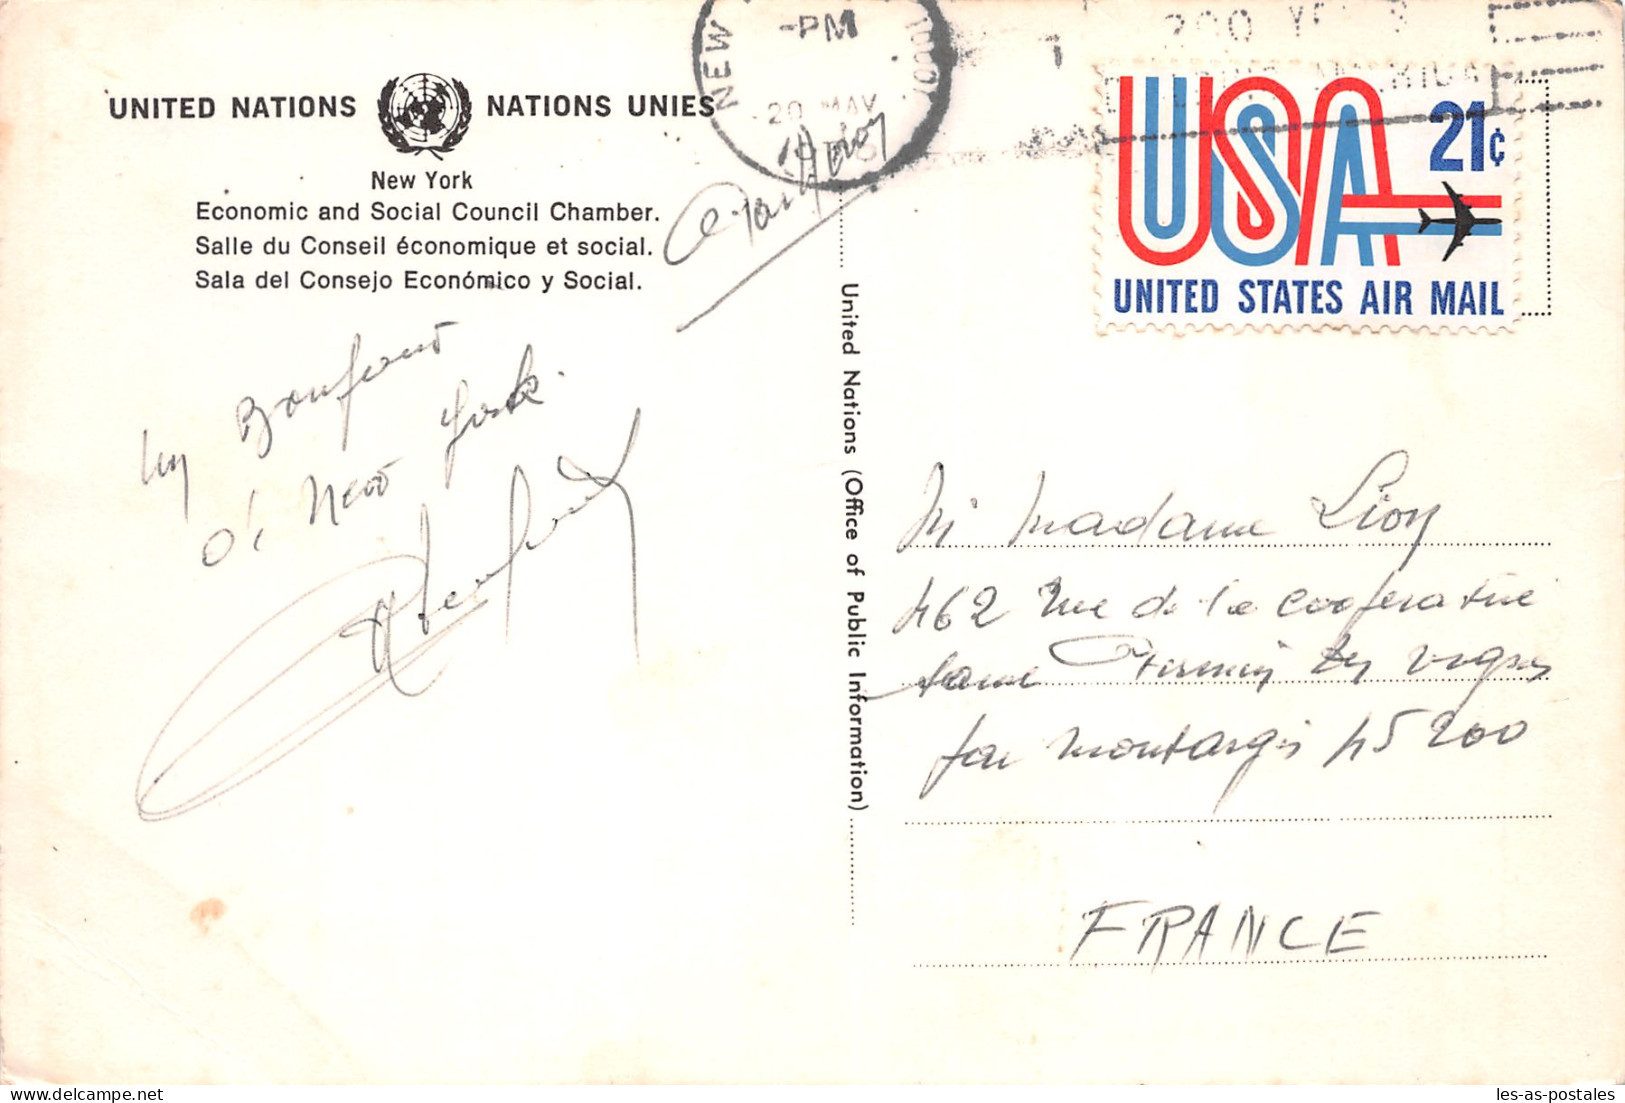 UNITED NATIONS NATIONS UNIES
New York
Economic and Social Council Chamber.
Salle du Conseil économique et social.
Sala del Consejo Económico y Social.
NEW
PM
20 MAY
10001
200
USA
21¢
UNITED STATES AIR MAIL
United Nations (Office of Public Information)
New York.
Madame Lion
462 rue de la cooperative
Firmin des vignes
par Montargis 45200
FRANCE
les-as-postales